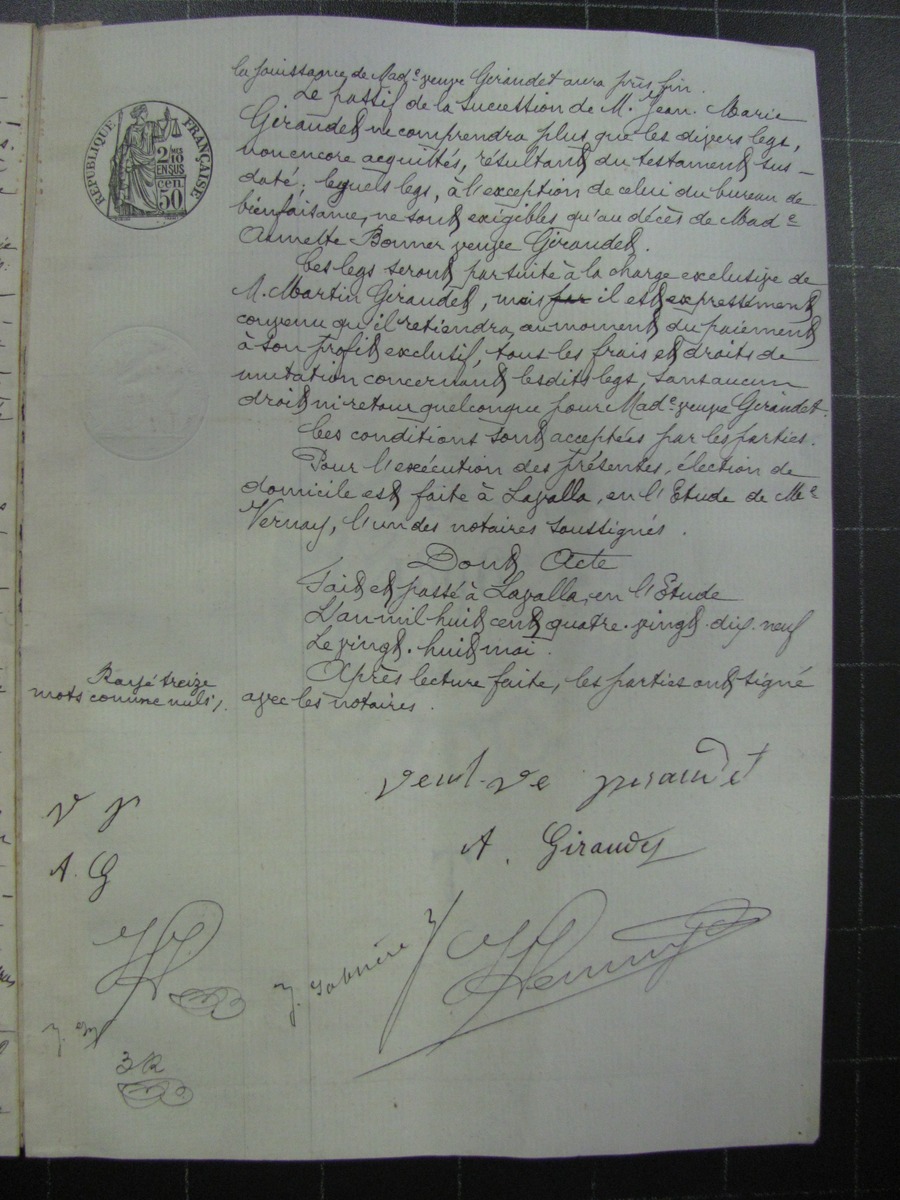 la jouissance de Mad.e veuve Giraudet aura pris fin.
Le passif de la succession de M. Jean-Marie
Giraudet ne comprendra plus que les divers legs,
non encore acquittés, résultant du testament sus-
daté; lequels legs, à l'exception de celui du bureau de
bienfaisance, ne sont exigibles qu'au décès de Mad.e
Annette Bonner veuve Giraudet.
Ces legs seront par suite à la charge exclusive de
M. Martin Giraudet, mais il est expressément
convenu qu'il retiendra, au moment du paiement
à son profit exclusif, tous les frais et droits de
mutation concernant lesdits legs, sans aucun
droit ni retour quelconque pour Mad.e veuve Giraudet.
Ces conditions sont acceptées par les parties.
Pour l'exécution des présentes, élection de
domicile est faite à Lavalla, en l'Etude de Me
Vernay, l'un des notaires soussignés.
Dont Acte
Fait et passé à Lavalla, en l'Etude
L'an mil huit cent quatre-vingt-dix-neuf
Le vingt-huit mai.
Après lecture faite, les parties ont signé
avec les notaires.
RÉPUBLIQUE FRANÇAISE
2/10 EN SUS
cen. 50
Rayé treize
mots comme nuls
A. G
A. Giraudet